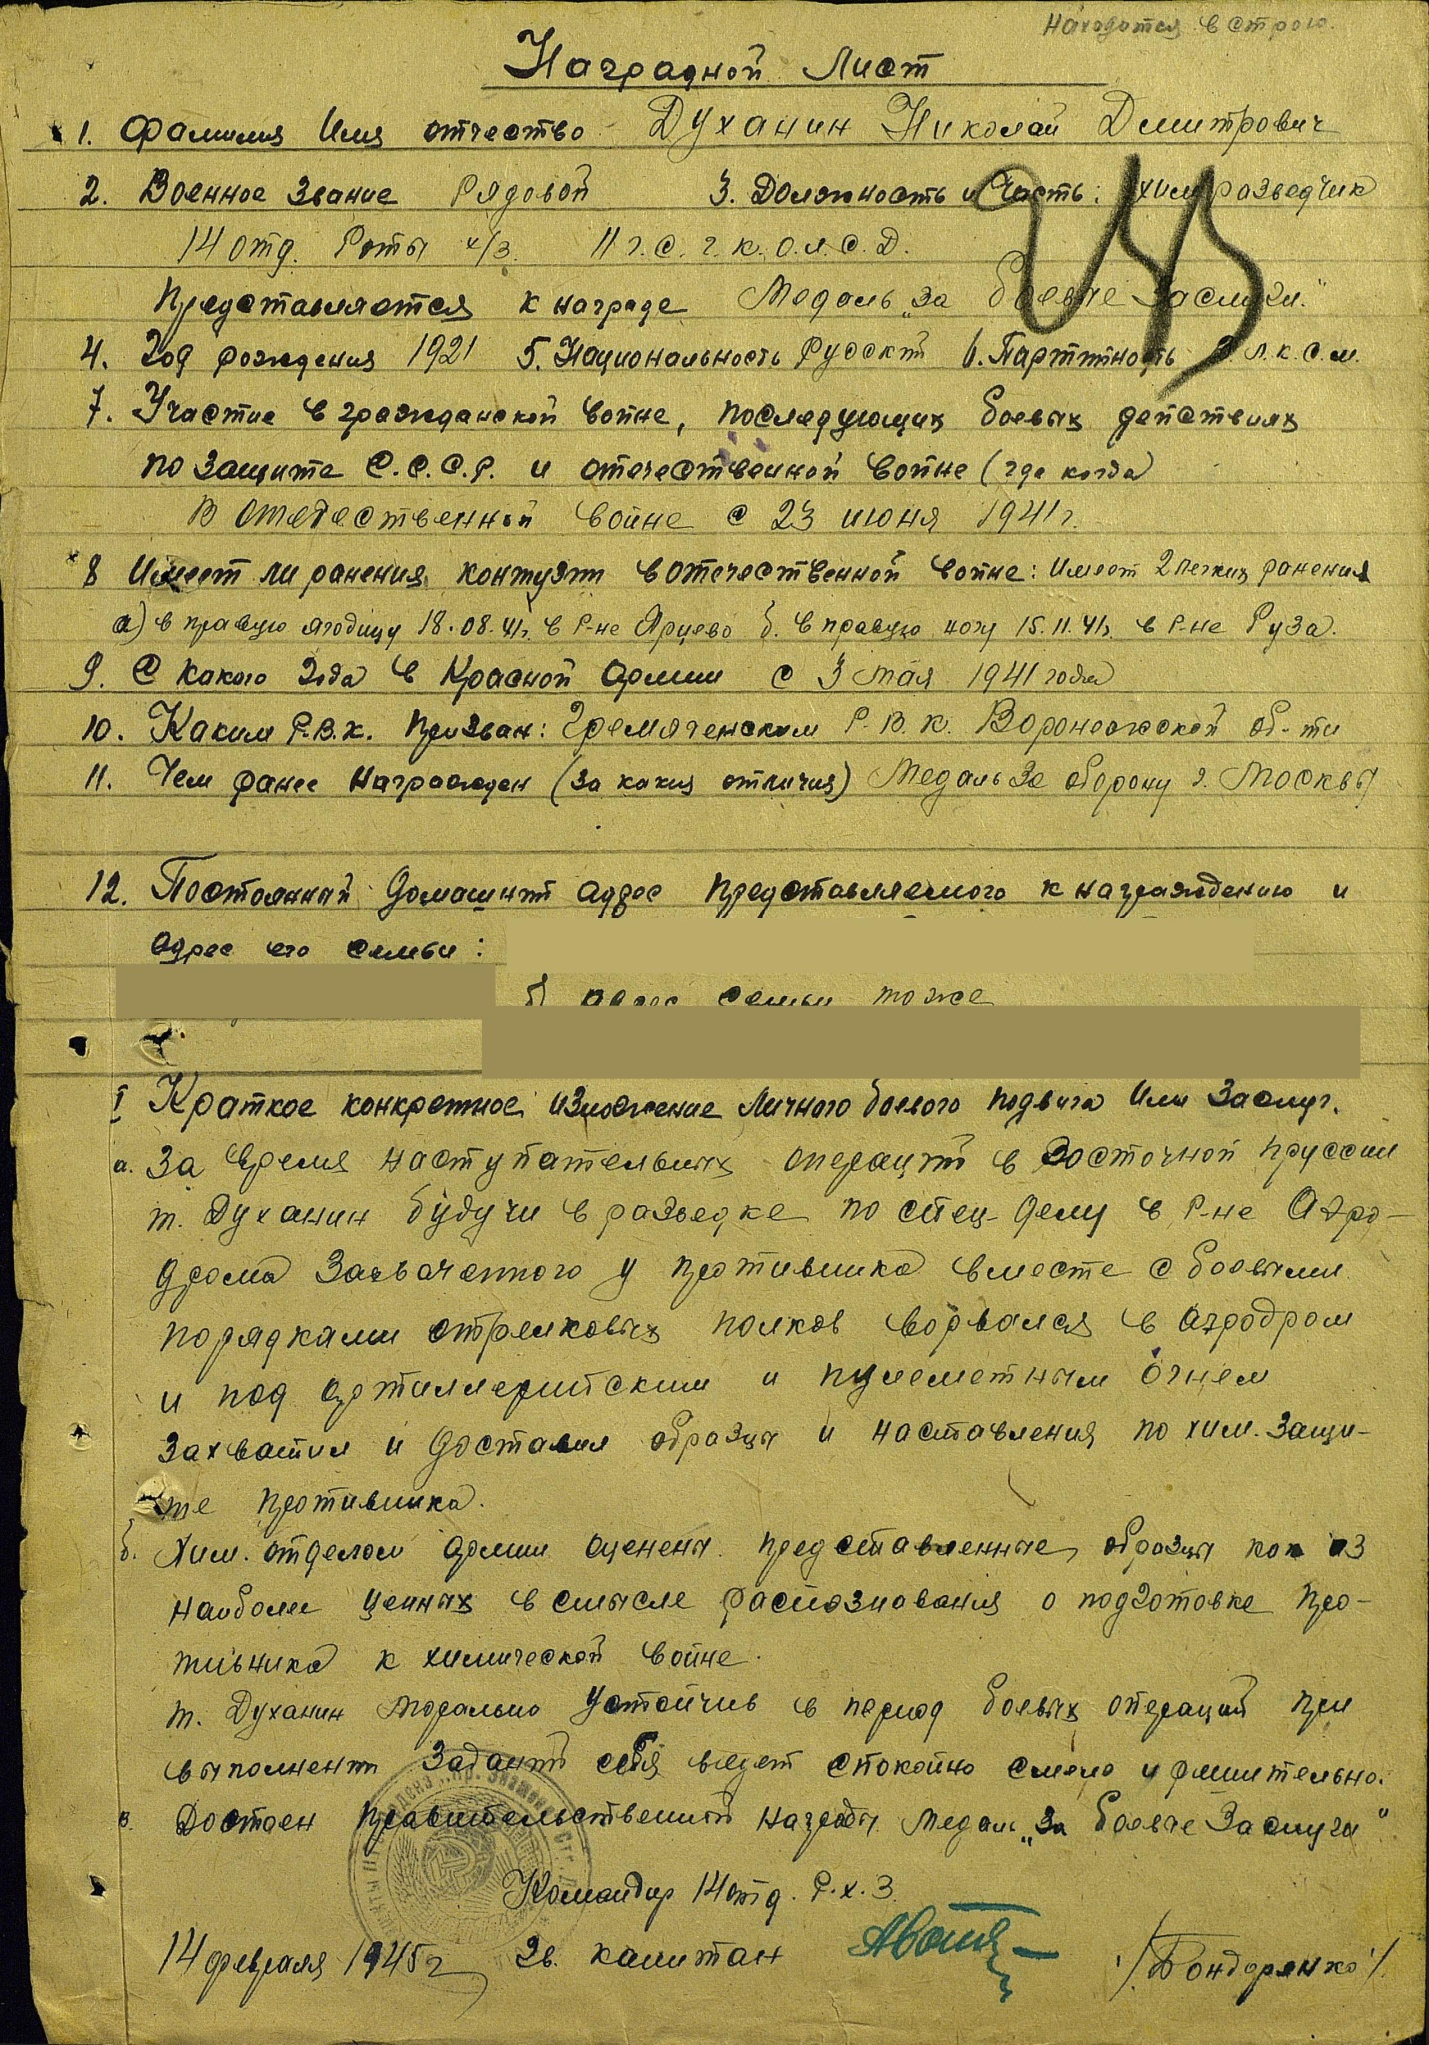 Находится в строю.
Наградной Лист
1. Фамилия Имя отчество Духанин Николай Дмитрович
2. Военное Звание Рядовой 3. Должность и Часть: химразведчик
14 отд. Роты х/з. 11 г.С.г.К.О.л.С.Д.
Представляется к награде Медаль „За боевые Заслуги."
4. Год рождения 1921 5. Национальность Русский 6. Партийность В.Л.К.С.М.
7. Участие в гражданской войне, последующих боевых действиях
по защите С.С.С.Р. и отечественной войне (где когда)
В Отечественной войне с 23 июня 1941г.
8 Имеет ли ранения, контузии в отечественной войне: Имеет 2 легких ранения
а) в правую ягодицу 18.08.41г. в Р-не Ярцево б. в правую ногу 15.11.41г. в Р-не Руза.
9. С какого года в Красной Армии с 3 мая 1941 года
10. Каким Р.В.К. призван: Гремяченским Р.В.К. Воронежской об-ти
11. Чем ранее Награжден (за какия отличия) Медаль За оборону г. Москвы
12. Постоянный Домашний адрес представляемого к награждению и
адрес его семьи:
б) адрес семьи тоже
I Краткое конкретное изложение Личного боевого подвига Или Заслуг.
а. За время наступательных операций в Восточной Пруссии
т. Духанин будучи в разведке по спец-делу в Р-не Аэро-
дрома Захваченного у противника вместе с боевыми
порядками стрелковых полков ворвался в аэродром
и под артиллерийским и пулеметным огнем
захватил и доставил образцы и наставления по хим. Защи-
те противника.
б. Хим. отделом армии оценены представленные образцы как из
наиболее ценных в смысле распознования о подготовке про-
тивника к химической войне.
т. Духанин Морально Устойчив в период боевых операций при
выполнении заданий себя ведет спокойно смело и решительно.
в. Достоен Правительственной награды Медаль „За боевые Заслуги"
Командир 14 отд. Р.х.З.
14 февраля 1945г гв. капитан /Бондаренко/.